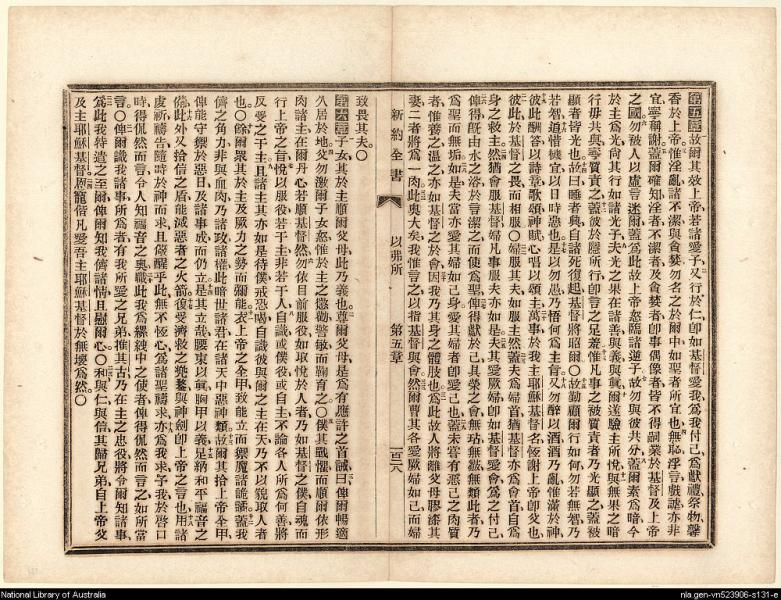 第五章故爾其效上帝若諸愛子又行於仁卽如基督愛我爲我付己爲獻禮祭物馨
香於上帝惟淫亂諸不潔與貪婪勿名之於爾中如聖者所宜也無恥浮言戲謔亦非
宜寧稱謝蓋爾確知淫者不潔者及貪婪者卽事偶像者皆不得嗣業於基督及上帝
之國勿被人以虛言迷爾蓋爲此故上帝怒臨諸逆子故勿與彼共分蓋爾素爲暗今
於主爲光尚其行如諸光子夫光之果在諸善與義與眞爾遂驗主所悅與無果之暗
行毋共與寧質責之蓋彼於隱所行卽言之足羞惟凡事之被質責者乃光顯之蓋被
顯者皆光也故曰睡者興自諸死復起基督將昭爾〇故勤顧爾行如何勿若無智乃
若智道惜機宜以日時惡也是以勿愚乃悟何爲主旨又勿醉以酒酒乃亂惟滿於神
彼此酬答以詩章歌頌神賦心唱以頌主萬事於我主耶穌基督名恆謝上帝卽父也
彼此於基督之畏而相服〇婦服其夫如服主然蓋夫爲婦首猶基督亦爲會首自爲
身之救主然猶會服基督婦凡事服夫亦如是夫其愛厥婦卽如基督愛會爲之付己
俾得旣由水之浴於言潔之而使爲聖俾得獻於己其榮之會無玷無皺無類此者乃
爲聖而無垢如是夫當亦愛其婦如己身愛其婦者卽愛己也蓋未嘗有惡己之肉質
者惟養之溫之亦如基督之於會因我乃其身之體肢也爲此故人將離父母膠漆其
妻二者將爲一肉此奧大矣我惟言之以指基督與會然爾曹其各愛厥婦如己而婦
新約全書 以弗所 第五章
致畏其夫〇
第六章子女其於主順爾父母此乃義也尊爾父母是爲有應許之首誡曰俾爾暢適
久居於地父勿激爾子女怒惟於主之懲勸警敏而鞠育之〇僕其戰懼而順爾依形
肉諸主在爾丹心若順基督然勿依目前服役如取悅於人者乃如基督之僕自魂而
行上帝之旨悅以服役若于主非若于人自識或僕役或自主不論各人所爲何善將
反受之于主且諸主其亦如是待僕戒恐喝自識彼與爾之主在天乃不以貌取人者
也〇餘爾衆其於主及厥力之勢而彌能衣上帝之全甲致能立而禦魔諸詭譎蓋我
儕之角力非與血肉乃諸政諸權此暗世諸君在諸天中惡神類故爾其拾上帝全甲
俾能守禦於惡日及諸事成而仍立是其立哉腰束以眞胸甲以義足納和平福音之
備此外又拾信之盾能滅惡者之火箭復受濟救之兜鍪與神劍卽上帝之言也用諸
虔祈禱告隨時於神而求且儆醒乎此無不恆心爲諸聖禱求亦爲我求予我於啓口
時得侃然而言令人知福音之奧職此我爲縲絏中之使者俾得侃然而言之如所當
言〇俾爾識我諸事所爲者有我所愛之兄弟推其古乃在主之忠役將令爾知諸事
爲此我特遣之至爾俾爾知我儕諸情且慰爾心〇和與仁與信其歸兄弟自上帝父
及主耶穌基督恩寵偕凡愛吾主耶穌基督於無壞爲然〇
National Library of Australia
nla.gen-vn523906-s131-e